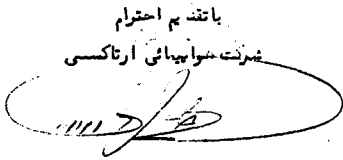 با تقدیم احترام
شرکت هواپیمائی ارتاکسی